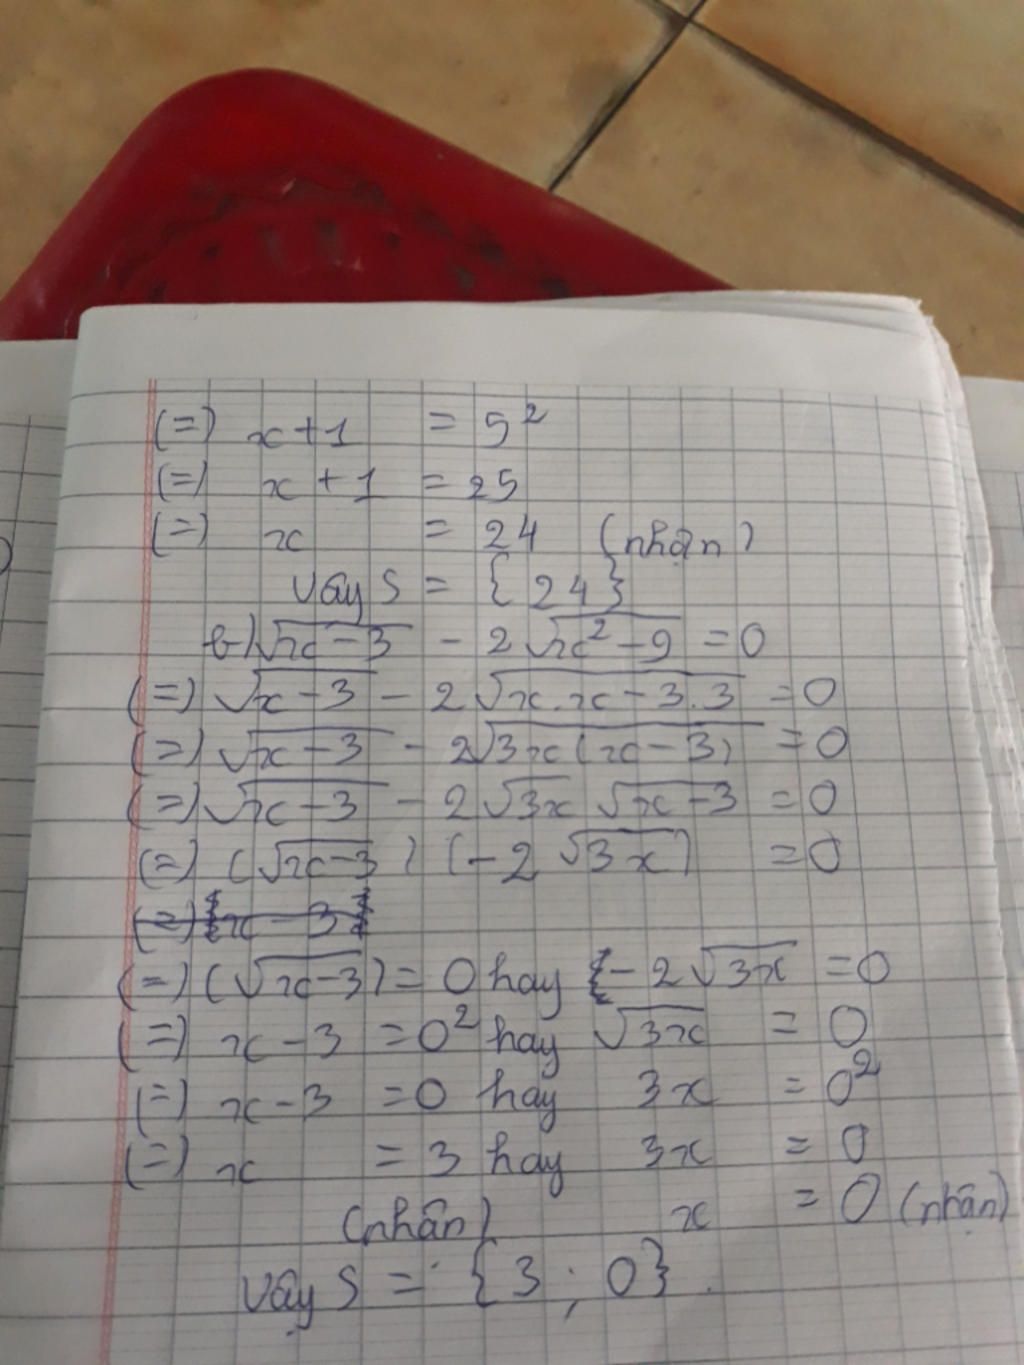 (=) x+1 = 5²
(=) x+1 = 25
(=) x = 24 (nhận)
Vậy S = {24}
b) √x-3 - 2√x²-9 = 0
(=) √x-3 - 2√x.x-3.3 = 0
(=) √x-3 - 2√3x(x-3) = 0
(=) √x-3 - 2√3x √x-3 = 0
(=) (√x-3) (-2√3x) = 0
(=) x-3
(=) (√x-3) = 0 hay -2√3x = 0
(=) x-3 = 0² hay √3x = 0
(=) x-3 = 0 hay 3x = 0²
(=) x = 3 hay 3x = 0
(nhận) x = 0 (nhận)
Vậy S = {3; 0}